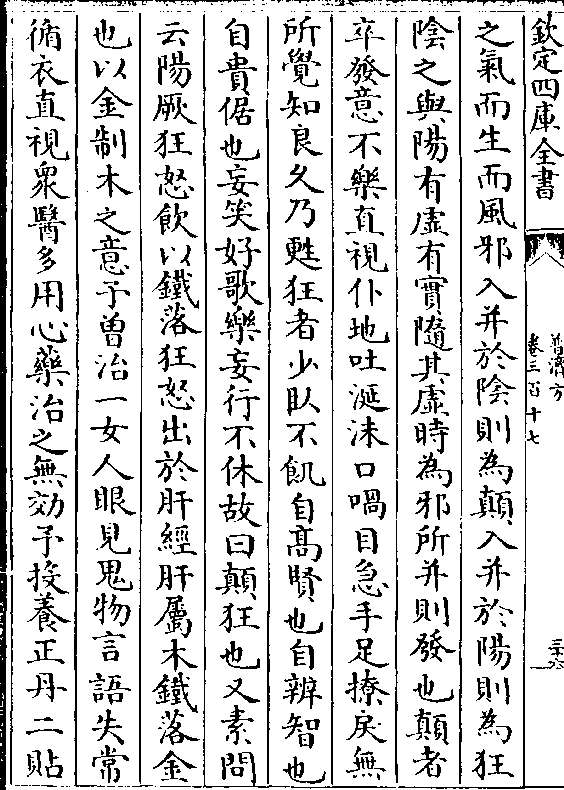 欽定四庫全書
普濟方
卷三百十七
三十六
之氣而生而風邪入并於陰則為顛入并於陽則為狂
陰之與陽有虛有實隨其虛時為邪所并則發也顛者
卒發意不樂直視仆地吐涎沫口喎目急手足撩戾無
所覺知良久乃甦狂者少臥不飢自髙賢也自辨智也
自貴倨也妄笑好歌樂妄行不休故曰顛狂也又素問
云陽厥狂怒飲以鐵落狂怒出於肝經肝屬木鐵落金
也以金制木之意予曽治一女人眼見鬼物言語失常
循衣直視衆醫多用心藥治之無効予投養正丹二貼